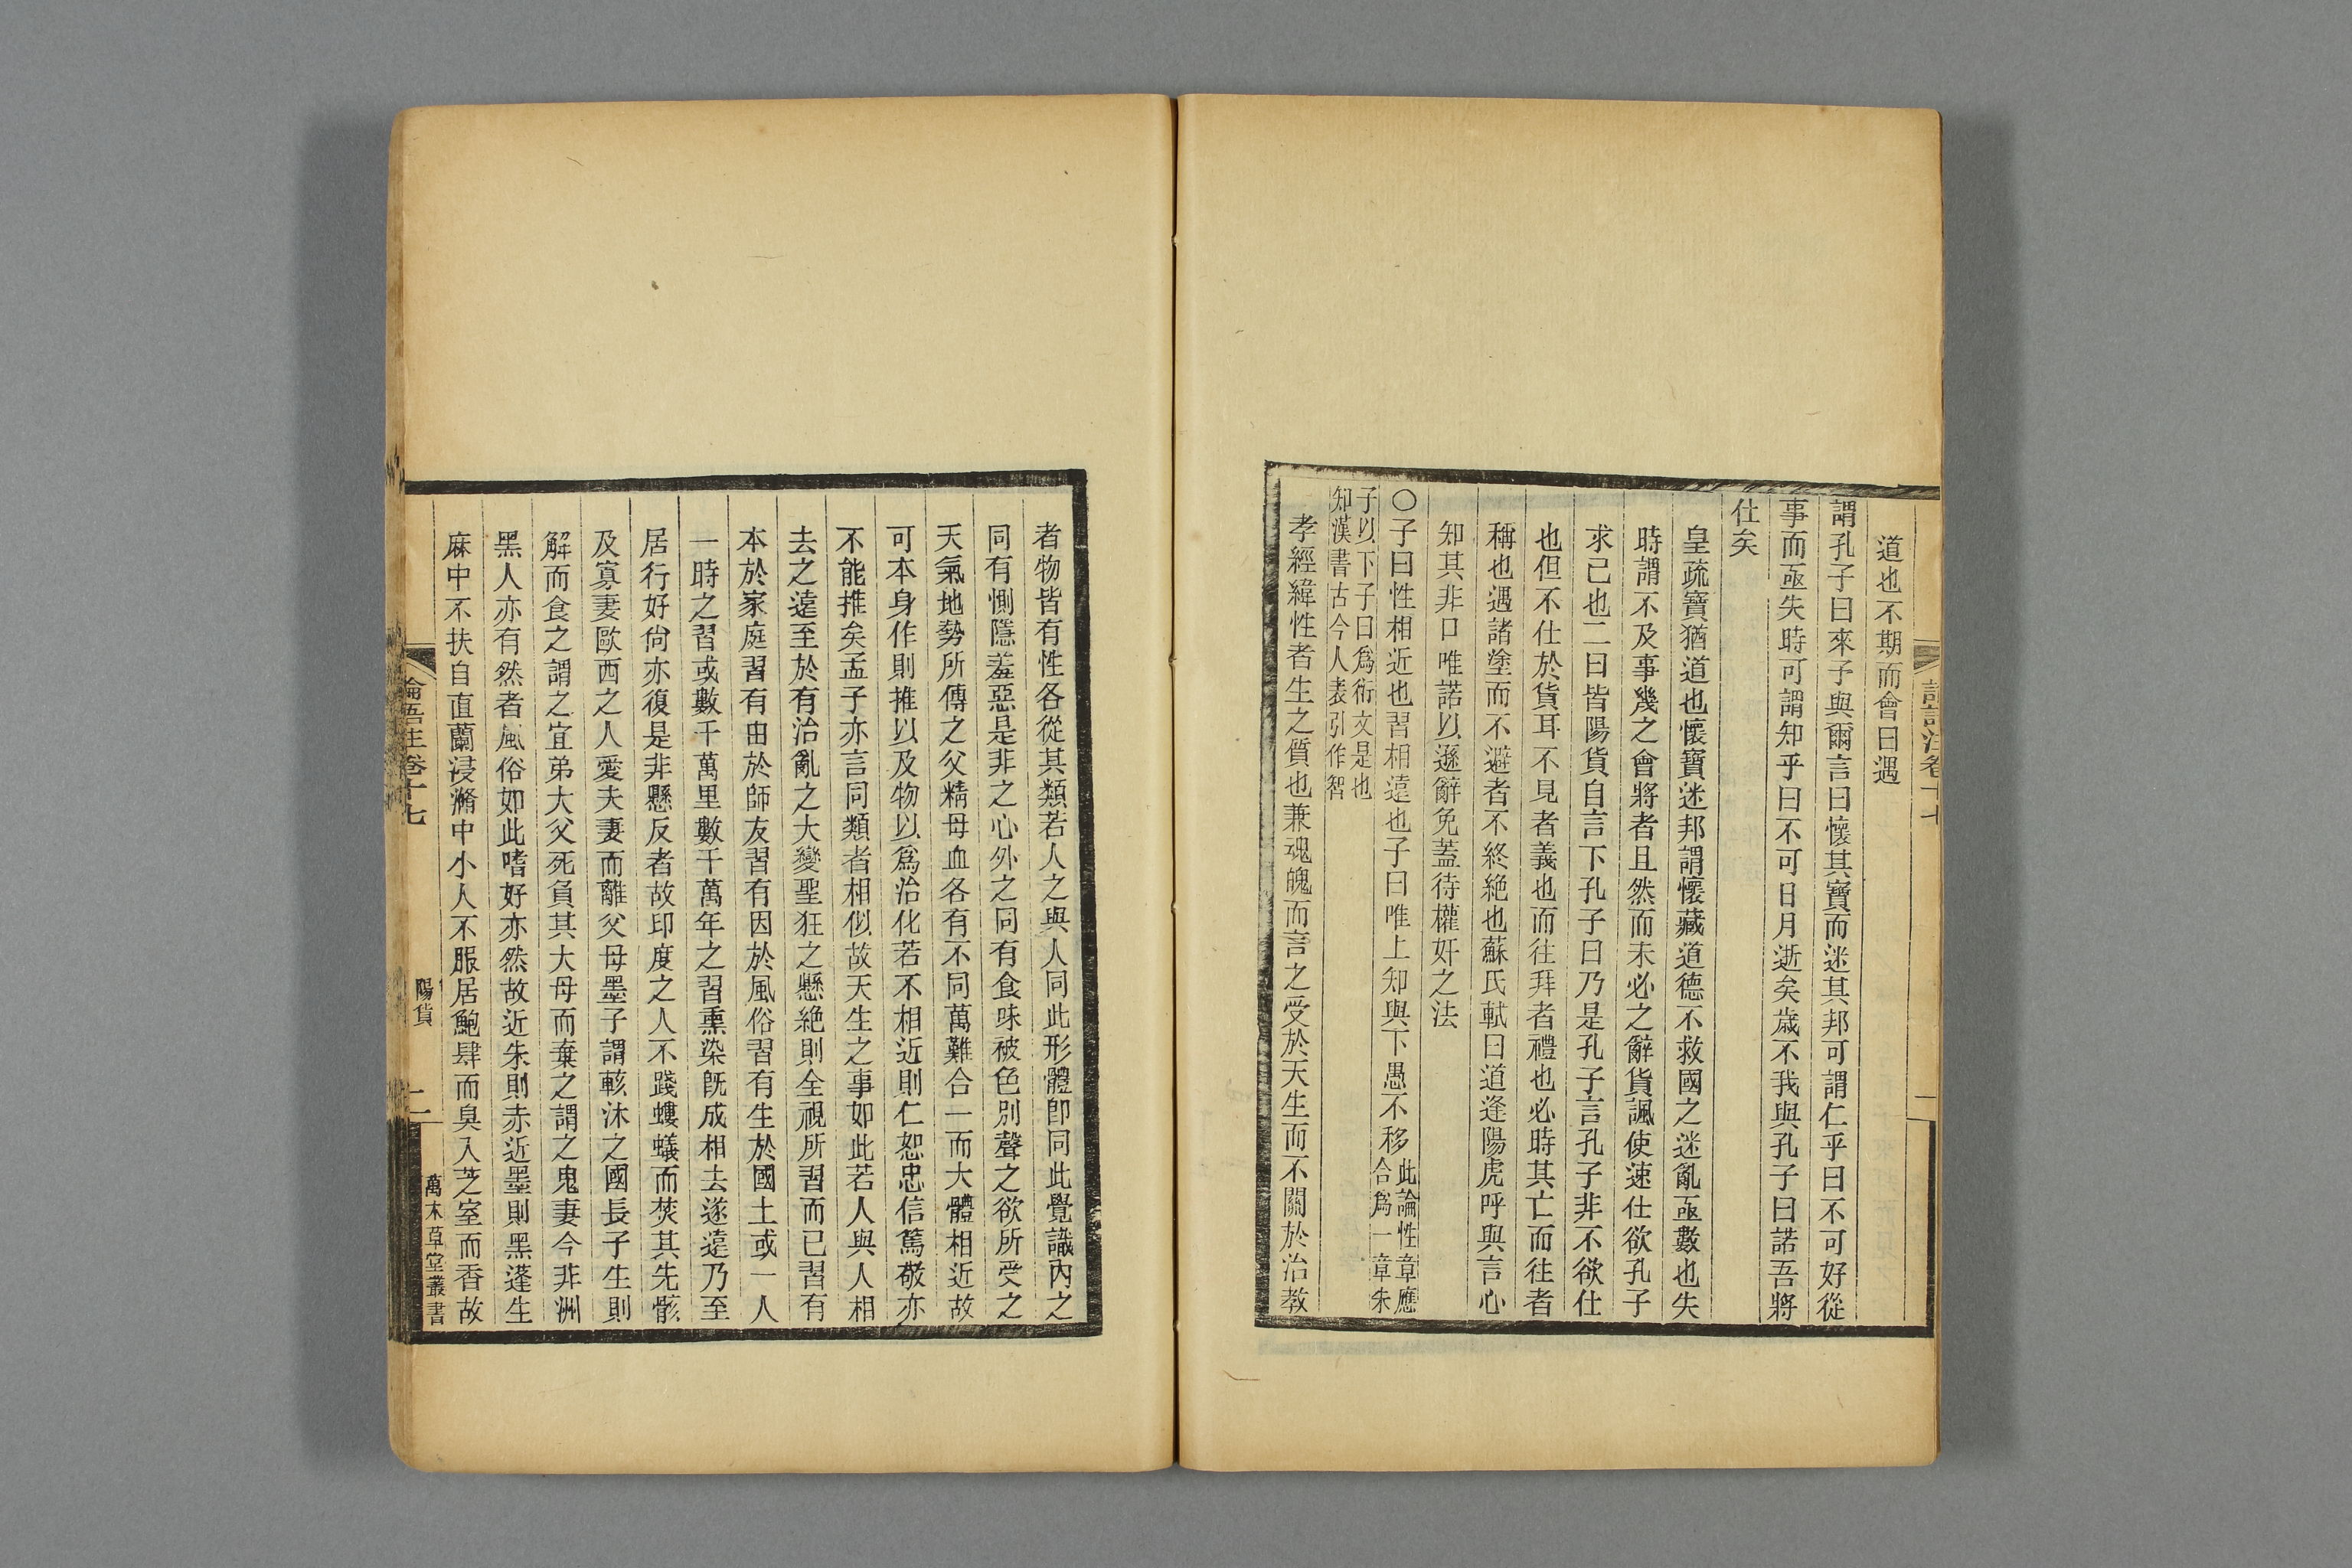 道也不期而會曰遇
謂孔子曰來予與爾言曰懷其寶而迷其邦可謂仁乎曰不可好從
事而亟失時可謂知乎曰不可日月逝矣歲不我與孔子曰諾吾將
仕矣
皇疏寶猶道也懷寶迷邦謂懷藏道德不救國之迷亂亟數也失
時謂不及事幾之會將者且然而未必之辭貨諷使速仕欲孔子
求己也二曰皆陽貨自言下孔子曰乃是孔子言孔子非不欲仕
也但不仕於貨耳不見者義也而往拜者禮也必時其亡而往者
稱也遇諸塗而不避者不終絶也蘇氏軾曰道逢陽虎呼與言心
知其非口唯諾以遜辭免蓋待權奸之法
〇子曰性相近也習相遠也子曰唯上知與下愚不移此論性章應
合爲一章朱
子以下子曰爲衍文是也
知漢書古今人表引作智
孝經緯性者生之質也兼魂魄而言之受於天生而不關於治教
者物皆有性各從其類若人之與人同此形體卽同此覺識內之
同有惻隱羞惡是非之心外之同有食味被色別聲之欲所受之
天氣地勢所傳之父精母血各有不同萬難合一而大體相近故
可本身作則推以及物以爲治化若不相近則仁恕忠信篤敬亦
不能推矣孟子亦言同類者相似故天生之事如此若人與人相
去之遠至於有治亂之大變聖狂之懸絶則全視所習而已習有
本於家庭習有由於師友習有因於風俗習有生於國土或一人
一時之習或數千萬里數千萬年之習熏染旣成相去遂遠乃至
居行好尙亦復是非懸反者故印度之人不踐螻蟻而焚其先骸
及寡妻歐西之人愛夫妻而離父母墨子謂輆沐之國長子生則
解而食之謂之宜弟大父死負其大母而棄之謂之鬼妻今非洲
黑人亦有然者風俗如此嗜好亦然故近朱則赤近墨則黑蓬生
麻中不扶自直蘭浸滫中小人不服居鮑肆而臭入芝室而香故
論語注卷十七
陽貨
二
萬木草堂叢書